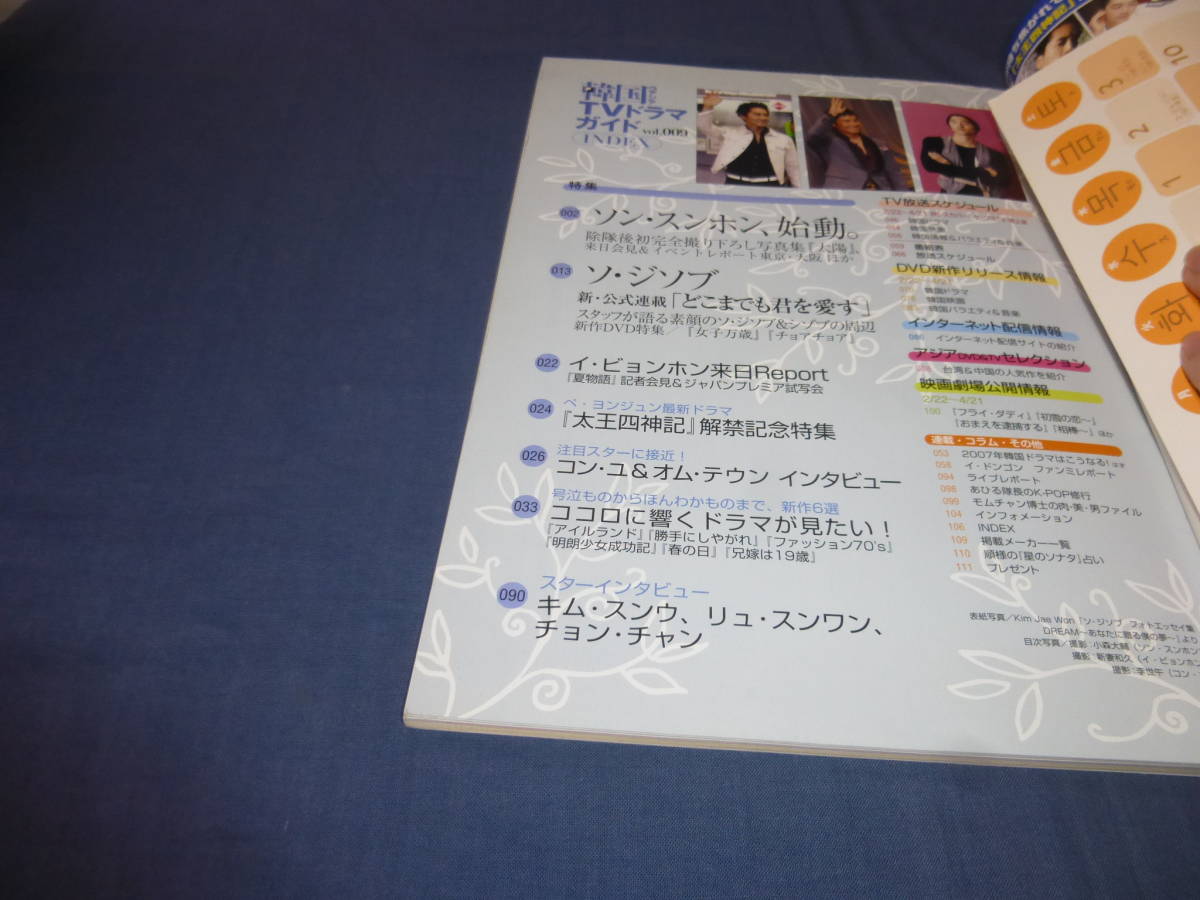 韓国
TVドラマ
ガイド vol.009
INDEX
特集
002 ソン・スンホン、始動。
除隊後初完全撮り下ろし写真集『太陽』、
来日会見&イベントレポート東京・大阪 ほか
013 ソ・ジソブ
新・公式連載「どこまでも君を愛す」
スタッフが語る素顔のソ・ジソブ&ジソブの周辺
新作DVD特集／『女子万歳』『チョアチョア』
022 イ・ビョンホン来日Report
『夏物語』記者会見&ジャパンプレミア試写会
024 ペ・ヨンジュン最新ドラマ
『太王四神記』解禁記念特集
026 注目スターに接近！
コン・ユ&オム・テウン インタビュー
033 号泣ものからほんわかものまで、新作6選
ココロに響くドラマが見たい！
『アイルランド』『勝手にしやがれ』『ファッション70's』
『明朗少女成功記』『春の日』『兄嫁は19歳』
090 スターインタビュー
キム・スンウ、リュ・スンワン、
チョン・チャン
TV放送スケジュール
韓国ドラマ
韓国映画
韓国情報&バラエティ&音楽
059 番組表
066 放送スケジュール
DVD新作リリース情報
韓国ドラマ
韓国映画
韓国バラエティ&音楽
インターネット配信情報
インターネット配信サイトの紹介
アジアDVD&TVセレクション
台湾&中国の人気作を紹介
映画劇場公開情報
2/22〜4/21
100 『フライ・ダディ』『初雪の恋〜』
『おまえを逮捕する』『相棒〜』ほか
連載・コラム・その他
053 2007年韓国ドラマはこうなる! ほか
058 イ・ドンゴン ファンミレポート
094 ライブレポート
098 あひる隊長のK-POP修行
099 モムチャン博士の肉・美・男ファイル
104 インフォメーション
106 INDEX
109 掲載メーカー一覧
110 順様の『星のソナタ』占い
111 プレゼント
表紙写真／Kim Jae Won『ソ・ジソブ フォトエッセイ集
DREAM〜あなたに贈る僕の夢〜』より
目次写真／撮影:小森大輔(ソン・スンホン
撮影:新妻和久(イ・ビョンホ
撮影:李世午(コン・
『太王四神記』
토
금
목
수
화
3
10
2
1